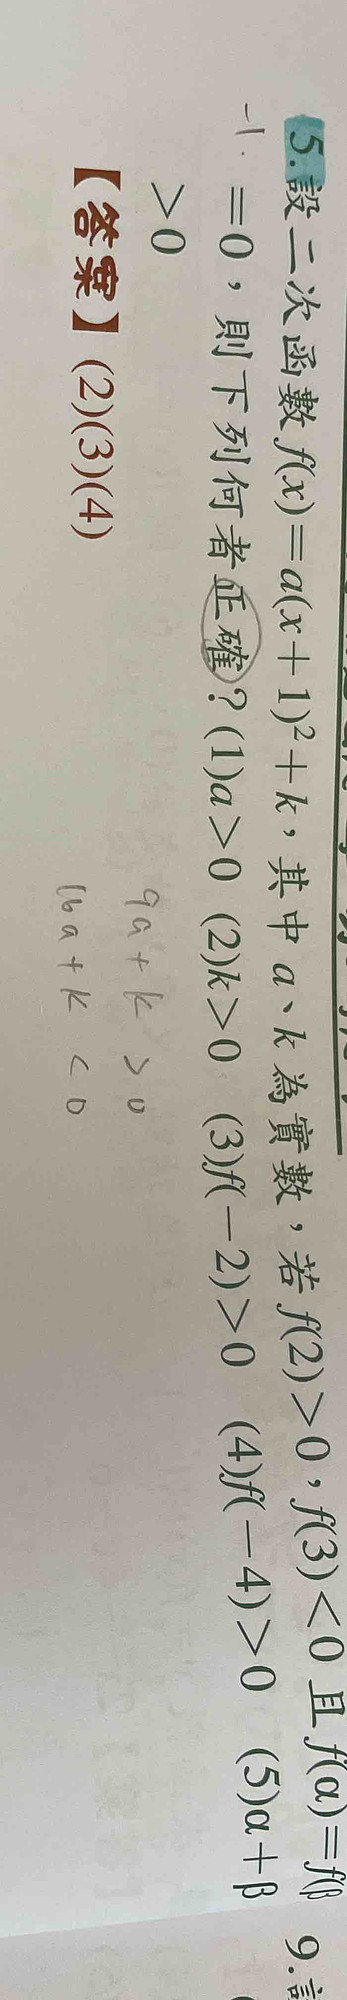 5.設二次函數f(x)=a(x+1)²+k,其中a、k為實數,若f(2)>0,f(3)<0且f(α)=f(β
=0,則下列何者正確?(1)a>0 (2)k>0 (3)f(-2)>0 (4)f(-4)>0 (5)α+β
>0
【答案】(2)(3)(4)
-1.
9a+k>0
16a+k<0
9.